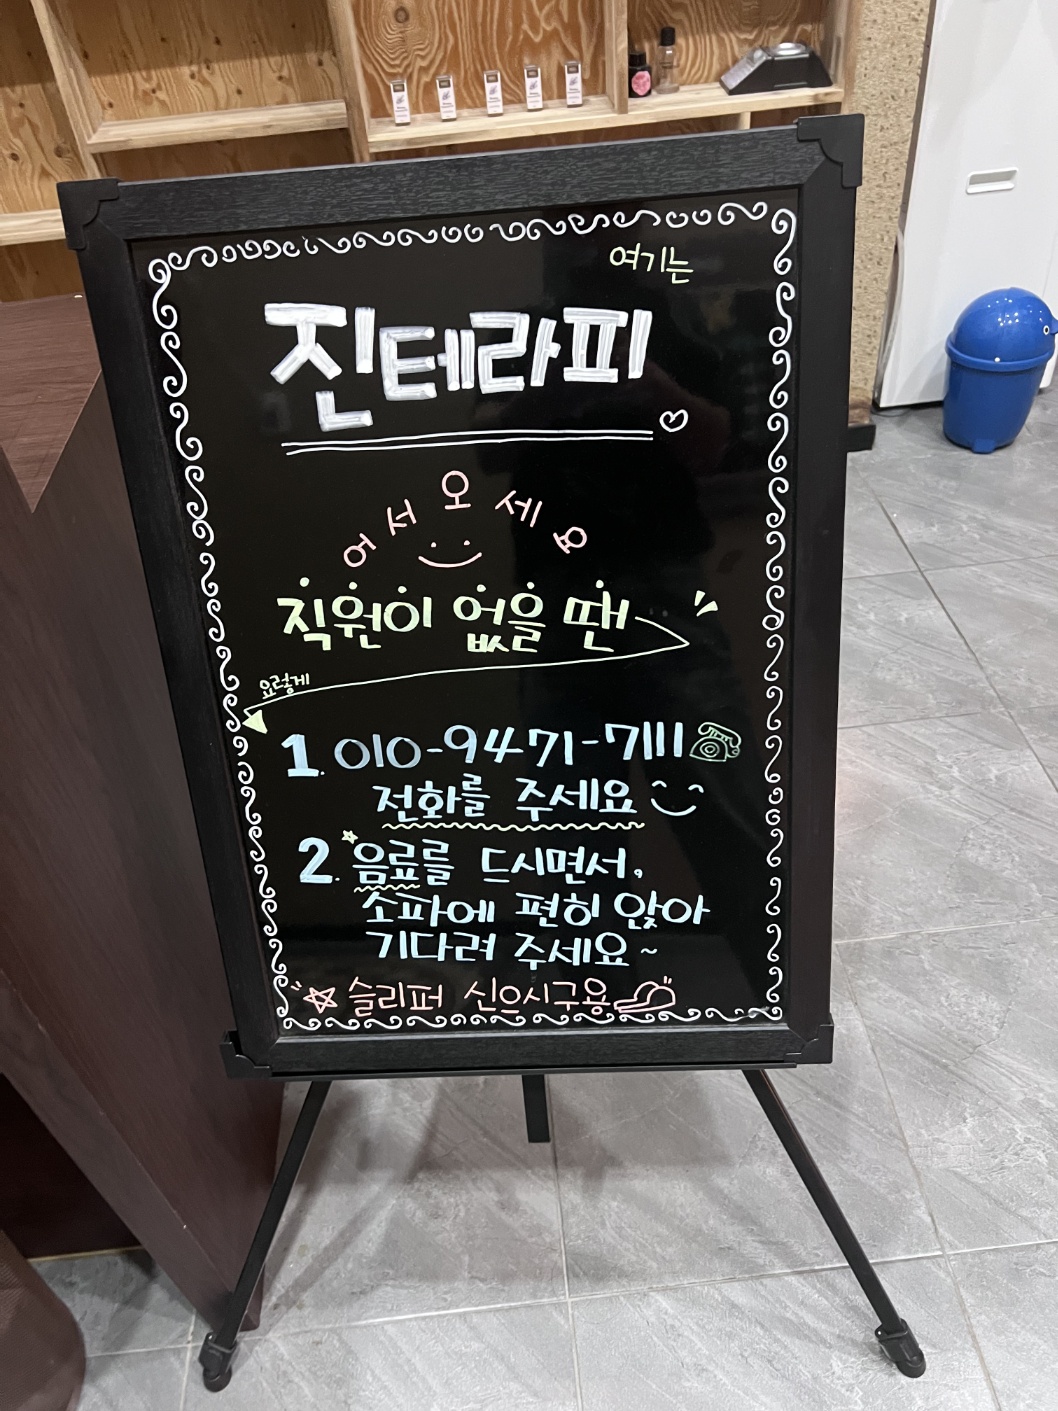 여기는
진테라피
어서오세요
직원이 없을 땐
요렇게
1. 010-9471-7111
전화를 주세요
2. 음료를 드시면서,
소파에 편히 앉아
기다려 주세요~
슬리퍼 신으시구용